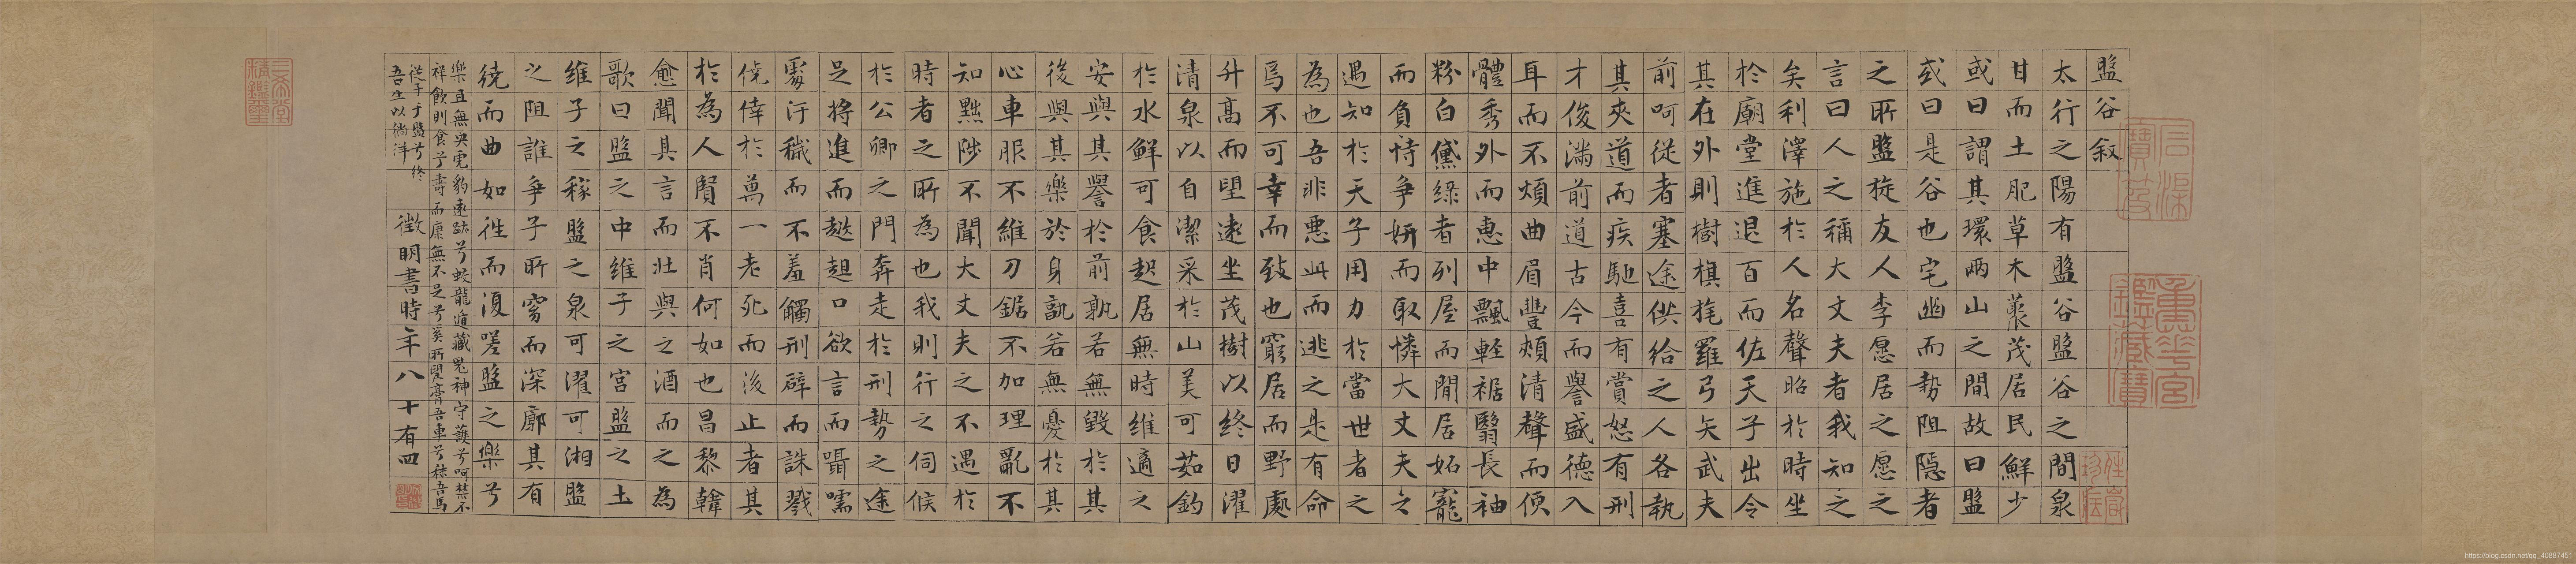 盤谷叙
太行之陽有盤谷盤谷之間泉
甘而土肥草木藂茂居民鮮少
或曰謂其環兩山之間故曰盤
或曰是谷也宅幽而勢阻隱者
之所盤旋友人李愿居之愿之
言曰人之稱大丈夫者我知之
矣利澤施於人名聲昭於時坐
於廟堂進退百而佐天子出令
其在外則樹旗旄羅弓矢武夫
前呵從者塞途供給之人各執
其夾道而疾馳喜有賞怒有刑
才俊滿前道古今而譽盛德入
耳而不煩曲眉豐頰清聲而便
體秀外而惠中飄軽裾翳長袖
粉白黛綠者列屋而閒居妬寵
而負恃爭妍而取憐大丈夫之
遇知於天子用力於當世者之
為也吾非惡此而逃之是有命
焉不可幸而致也窮居而野處
升高而望遠坐茂樹以終日濯
清泉以自潔采於山美可茹釣
於水鮮可食起居無時維適之
安與其譽於前孰若無毀於其
後與其樂於身孰若無憂於其
心車服不維刀鋸不加理亂不
知黜陟不聞大丈夫之不遇於
時者之所為也我則行之伺候
於公卿之門奔走於刑勢之途
足將進而趑趄口欲言而囁嚅
處汙穢而不羞觸刑辟而誅戮
僥倖於萬一老死而後止者其
於為人賢不肖何如也昌黎韓
愈聞其言而壯與之酒而之為
歌曰盤之中維子之宮盤之土
維子之稼盤之泉可濯可湘盤
之阻誰爭子所窈而深廓其有
繞而曲如往而復嗟盤之樂兮
樂且無央虎豹遠跡兮蛟龍遁藏鬼神守護兮呵禁不
祥飲則食兮壽而康無不足兮奚所望膏吾車兮秣吾馬
從子于盤兮終
吾生以徜徉
徵明書時年八十有四
三希堂
精鑑璽
重華宮
鑑藏寶
https://blog.csdn.net/qq_40887451